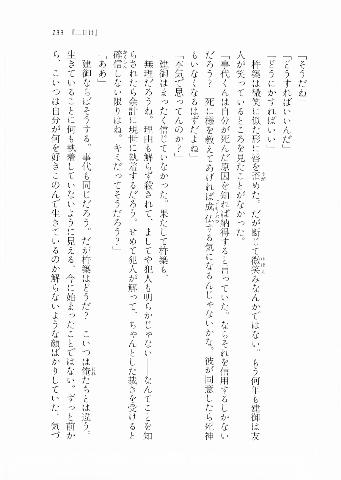 233 『二日目』
「そうだね」
「どうすればいいんだ」
「どうにかすればいい」
　杵築は微笑に似た形に唇を歪めた。だが断じて微笑みなんかではない。もう何年も建御は友
人が笑っているところを見たことがなかった。
「事代くんは自分が死んだ原因を知れば納得すると言っていた。ならそれを信用するしかない
だろう？　死に様を教えてあげれば成仏する気になるんじゃないかな。彼が同意したら死神
もいなくなるはずだよね」
「本気で思ってんのか？」
　建御はまったく信じていなかった。果たして杵築も、
「無理だろうね。理由も解らず殺されて、ましてや犯人も明らかじゃない――なんてことを知
らされたら余計に現世に執着するだろう。せめて犯人が解って、ちゃんとした裁きを受けると
確信しない限りはね。キミだってそうだろう？」
「ああ」
　建御ならばそうする。事代も同じだろう。だが杵築はどうだ？　こいつは俺たちとは違う。
生きていることに何も執着していないように見える。今に始まったことではない。ずっと前か
ら、こいつは自分が何を好きこのんで生きているのか解らないような顔ばかりしていた。気づ